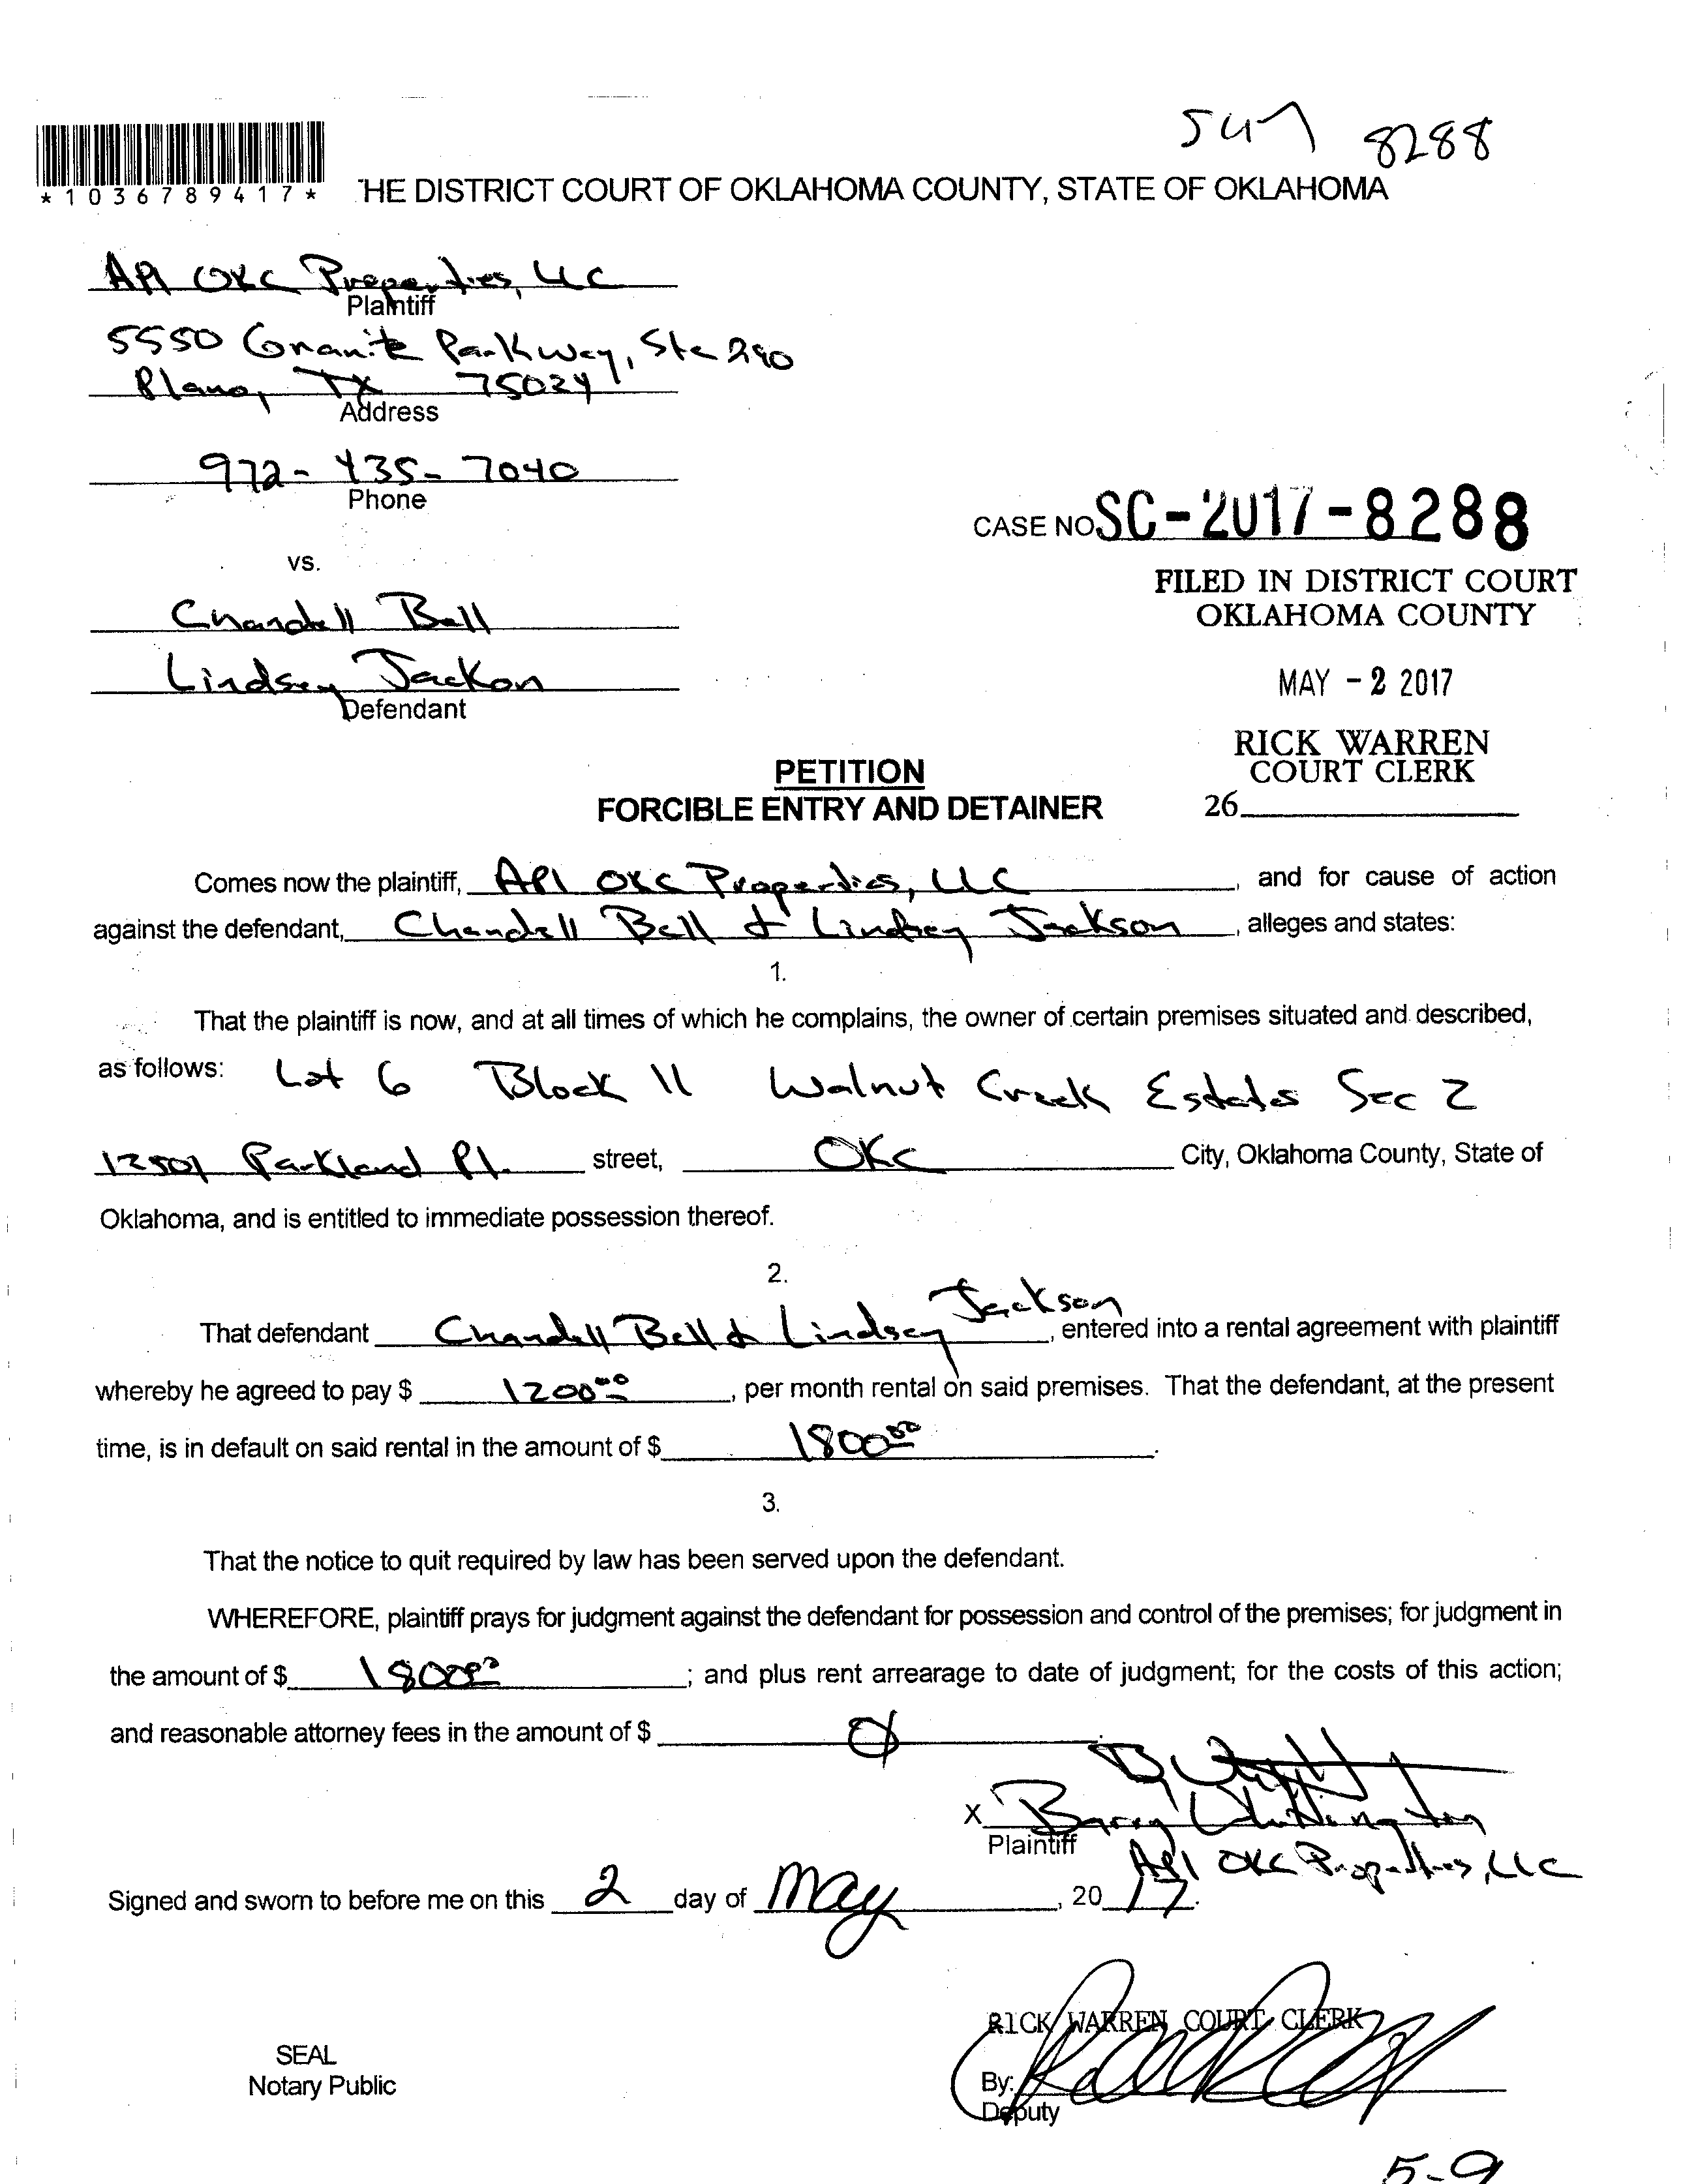 8288
*1036789417*
HE DISTRICT COURT OF OKLAHOMA COUNTY, STATE OF OKLAHOMA
API OKC Properties, LLC
Plaintiff
5550 Granite Parkway, Ste 290
Plano, TX 75024
Address
972-435-7040
Phone
CASE NO. SC-2017-8288
vs.
FILED IN DISTRICT COURT
OKLAHOMA COUNTY
Chandell Bell
Lindsey Jackon
Defendant
MAY -2 2017
RICK WARREN
COURT CLERK
26
PETITION
FORCIBLE ENTRY AND DETAINER
Comes now the plaintiff, API OKC Properties, LLC, and for cause of action
against the defendant, Chandell Bell & Lindsey Jackson, alleges and states:
1.
That the plaintiff is now, and at all times of which he complains, the owner of certain premises situated and described,
as follows: Lot 6 Block 11 Walnut Creek Estates Sec 2
12501 Parkland Pl. street, OKC City, Oklahoma County, State of
Oklahoma, and is entitled to immediate possession thereof.
2.
That defendant Chandell Bell & Lindsey Jackson, entered into a rental agreement with plaintiff
whereby he agreed to pay $ 1200.00, per month rental on said premises. That the defendant, at the present
time, is in default on said rental in the amount of $ 1800.00.
3.
That the notice to quit required by law has been served upon the defendant.
WHEREFORE, plaintiff prays for judgment against the defendant for possession and control of the premises; for judgment in
the amount of $ 1800.00; and plus rent arrearage to date of judgment; for the costs of this action;
and reasonable attorney fees in the amount of $ Ø
X Barry Whittington
Plaintiff
API OKC Properties, LLC
Signed and sworn to before me on this 2 day of May, 2017.
RICK WARREN COURT CLERK
SEAL
Notary Public
By:
Deputy
5-9